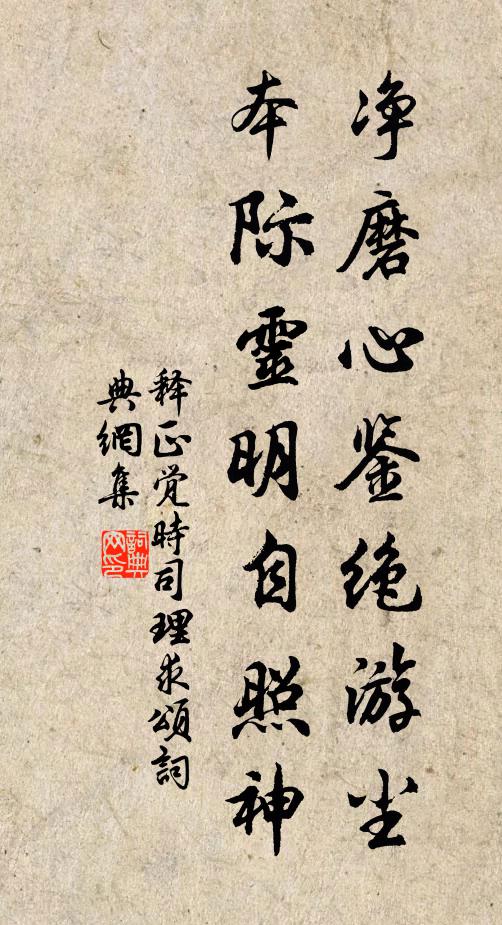 净磨心鉴绝游尘
本际靈明自照神
释正觉時司理求頌詞
典網集
詞典
网印